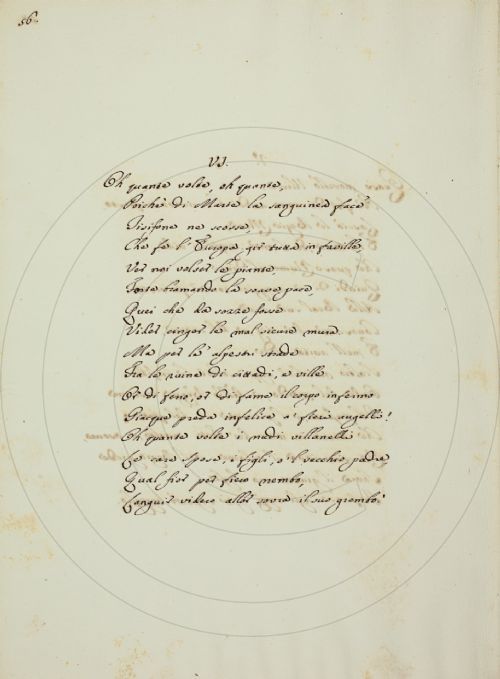 56.
VI.
Oh quante volte, oh quante,
Poichè di Marte la sanguinea face
Tisifone ne scosse,
Che fe l'Europa gir tutta in faville,
Ver noi volser le piante,
Forte bramando la soave pace,
Quei che da sozze fosse
Vider cinger le mal sicure mura.
Ma per le alpestri strade
Fra le ruine di cittadi, e ville
Or di ferro, or di fame il corpo infermo
Giacque preda infelice a' fieri augelli!
Oh quante volte i nudi villanelli
Le care spose, i figli, o 'l vecchio padre,
Qual fior per fiero nembo,
Languir videro allor sovra il suo grembo!